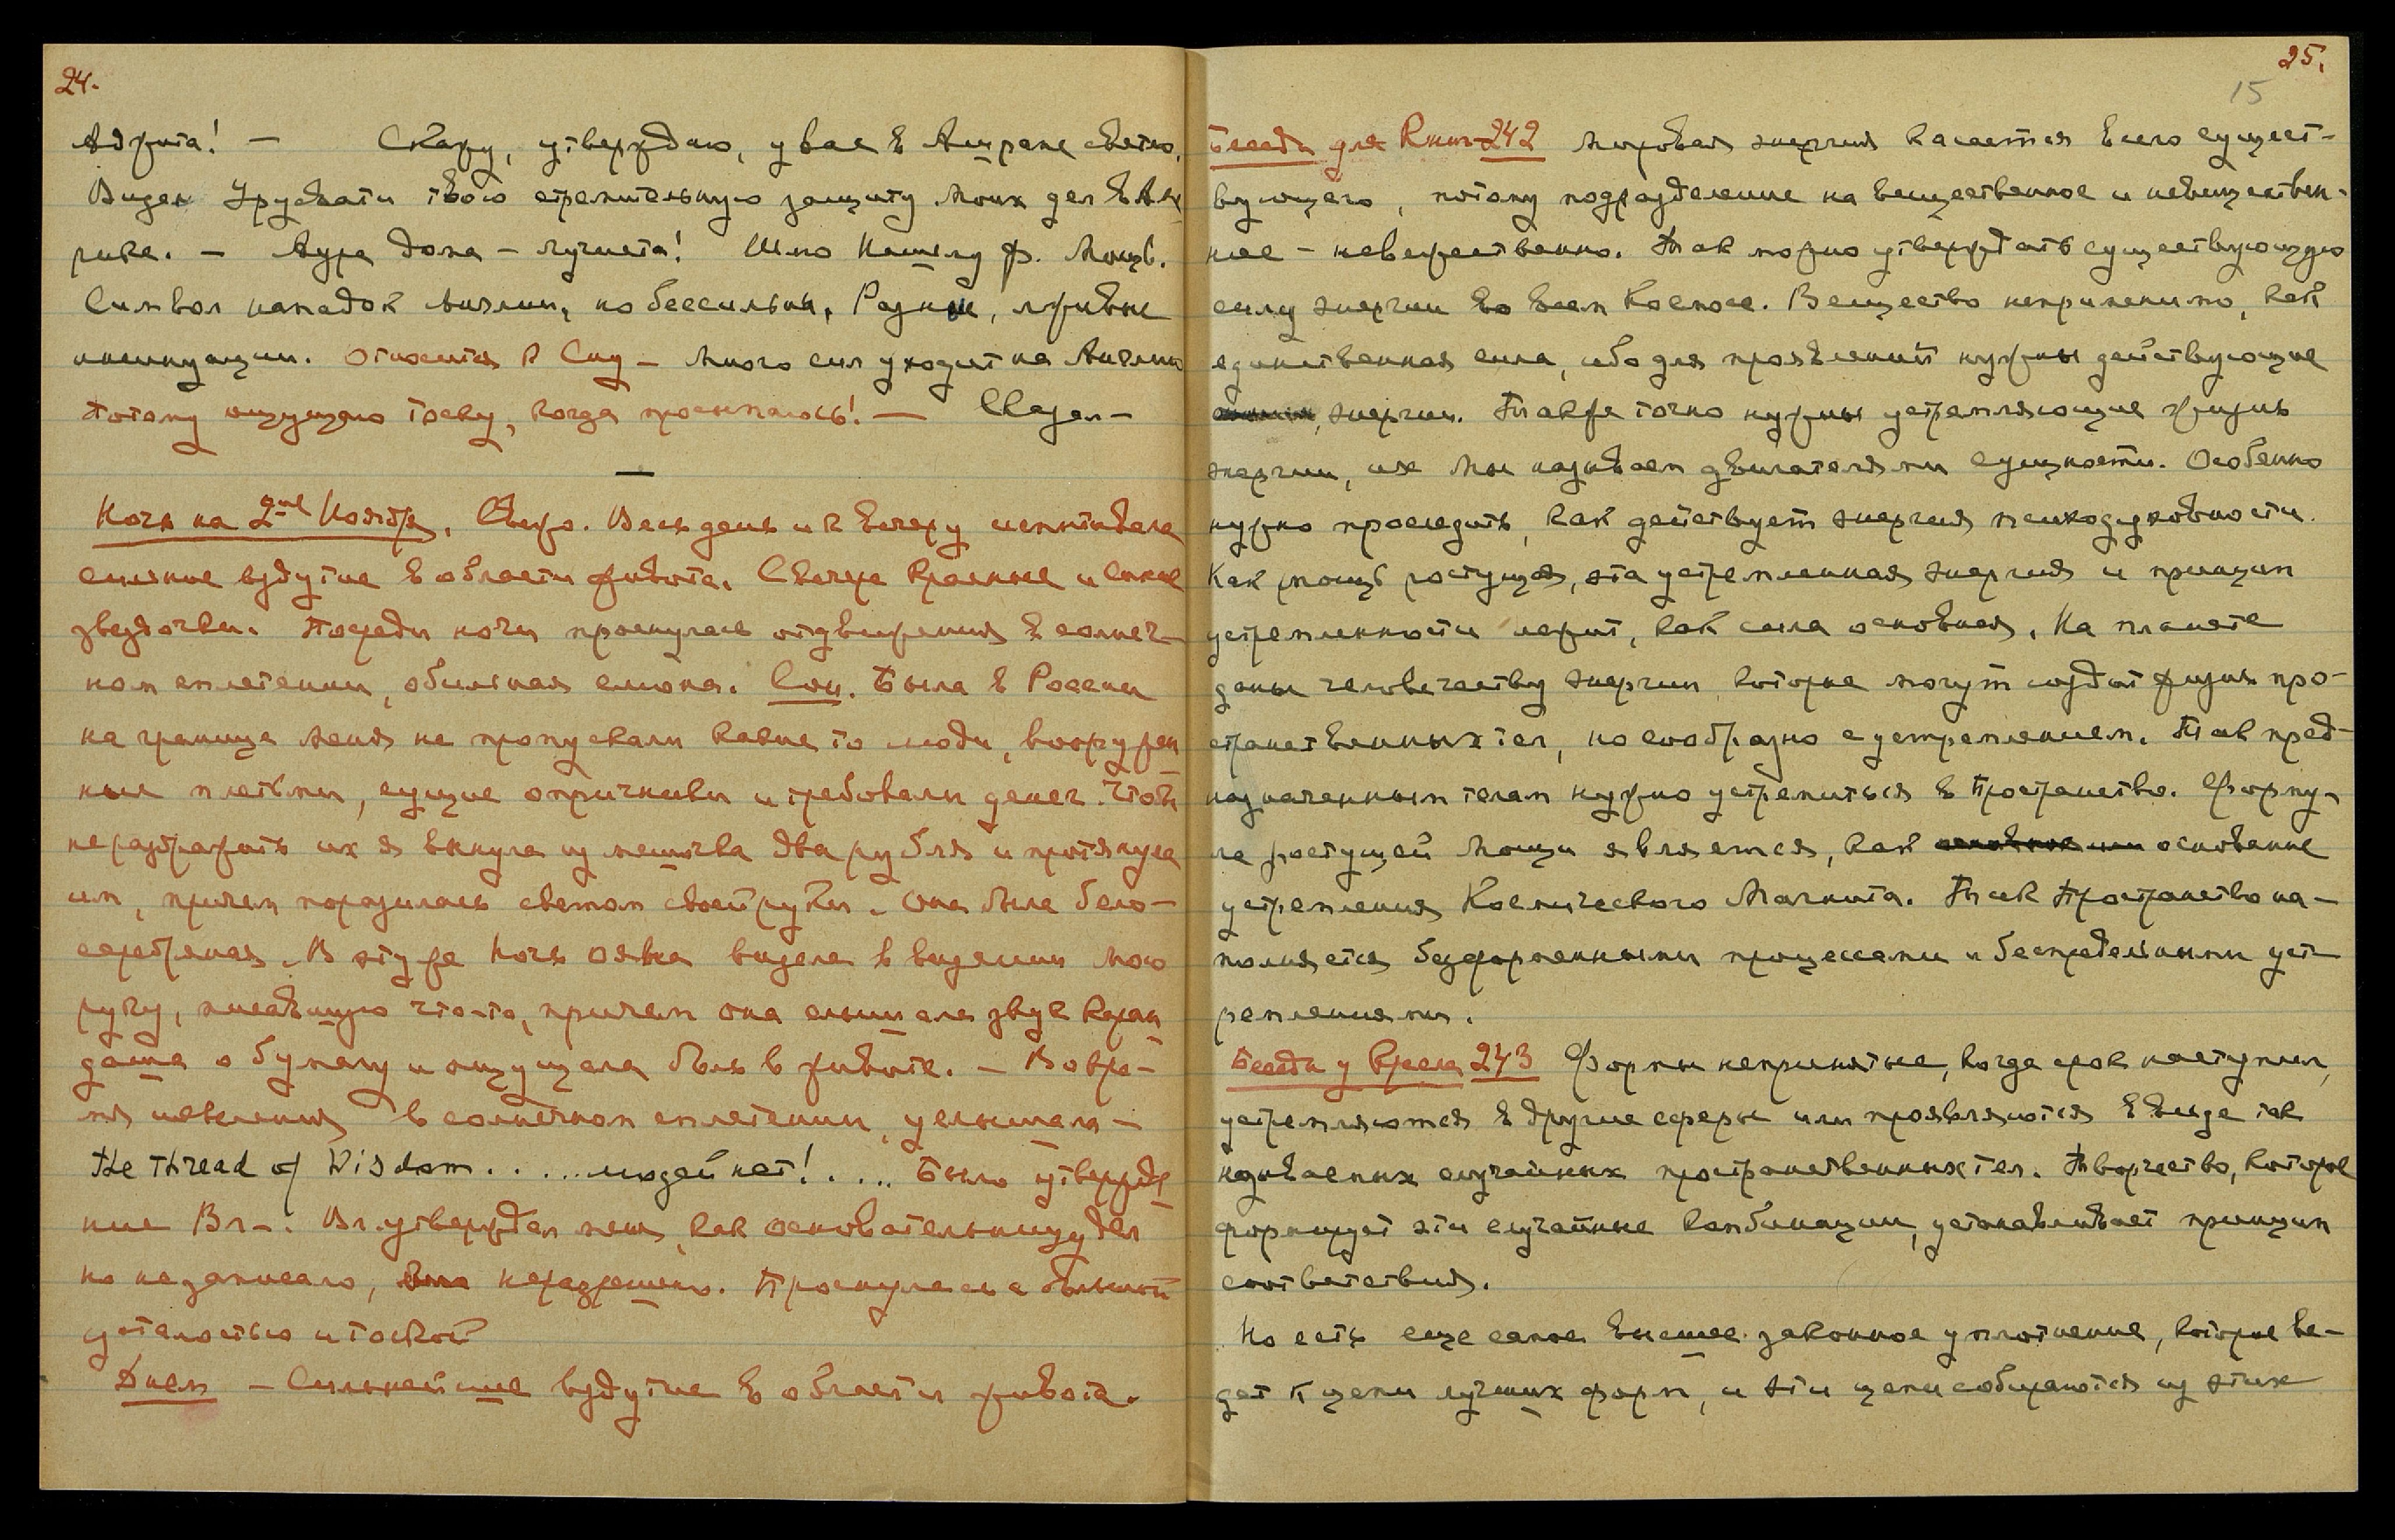 24.
Аджита! — Скажу, утверждаю, у вас в Ашраме светло.
Видел Урусвати твою стремительную защиту Моих дел в Аме
рике. — Аура дома — лучшета! Шлю Нашему Ф. Мощь.
Символ нападок Англии, но бессильны. Разные, лживые
инсинуации. Относится к Сну — Много сил уходит на Англию
Потому ощущаю тоску, когда просыпаюсь! — Сказал —
Ночь на 2ое Ноября. Свежо. Весь день и к вечеру испытывала
сильное вздутие в области живота. С вечера красные и синие
звездочки. Посреди ночи проснулась от движения в солнеч-
ном сплетении, обильная слюна. Сон. Была в России
на границе меня не пропускали какие то люди, вооружен
ные плетьми, сущие опричники и требовали денег. Чтобы
не раздражать их я вынула из мешочка два рубля и протянула
им, причем поразилась светом своей руки. Она была бело-
серебряная. В эту же Ночь Ояна видела в видении Мою
руку, писавшую что-то, причем она слышала звук каран
даша о бумагу и ощущала боль в животе. — Во вре-
мя явления в солнечном сплетении, услышала —
The thread of Wisdom . . . . . людей нет! . . . . Было утвержде
ние Вл —. Вл. утверждал меня, как основательницу дел
но не записано, не разрешено. Проснулась с большой
усталостью и тоской
Днем — Сильнейшее вздутие в области живота.
25.
15
Беседы для Книг-242 Мировая энергия касается всего сущест-
вующего, потому подразделение на вещественное и невеществен-
ное — невежественно. Так можно утверждать существующую
силу энергии во всем Космосе. Вещество неприменимо, как
единственная сила, ибо для проявлений нужны действующие
энергии. Так же точно нужны устремляющие жизнь
энергии, их Мы называем двигателями сущности. Особенно
нужно проследить, как действует энергия психодуховности.
Как мощь растущая, эта устремленная энергия и принцип
устремленности лежит, как сила основная. На планете
даны человечеству энергии которые могут создать жизнь про-
странственных тел, но сообразно с устремлением. Так пред-
назначенным телам нужно устремиться в Пространство. Форму-
ла растущей Мощи является, как основное или основание
устремления Космического Магнита. Так Пространство на-
полняется безформенными процессами и беспредельными уст
ремлениями.
Беседы у Кресла 243 Формы непринятые, когда срок наступил,
устремляются в другие сферы или проявляются в виде так
называемых случайных пространственных тел. Творчество, которое
формирует эти случайные комбинации, устанавливает принцип
соответствия.
Но есть еще самое высшее законное уплотнение, которое ве-
дет к цепи лучших форм, и эти цепи собираются из этих